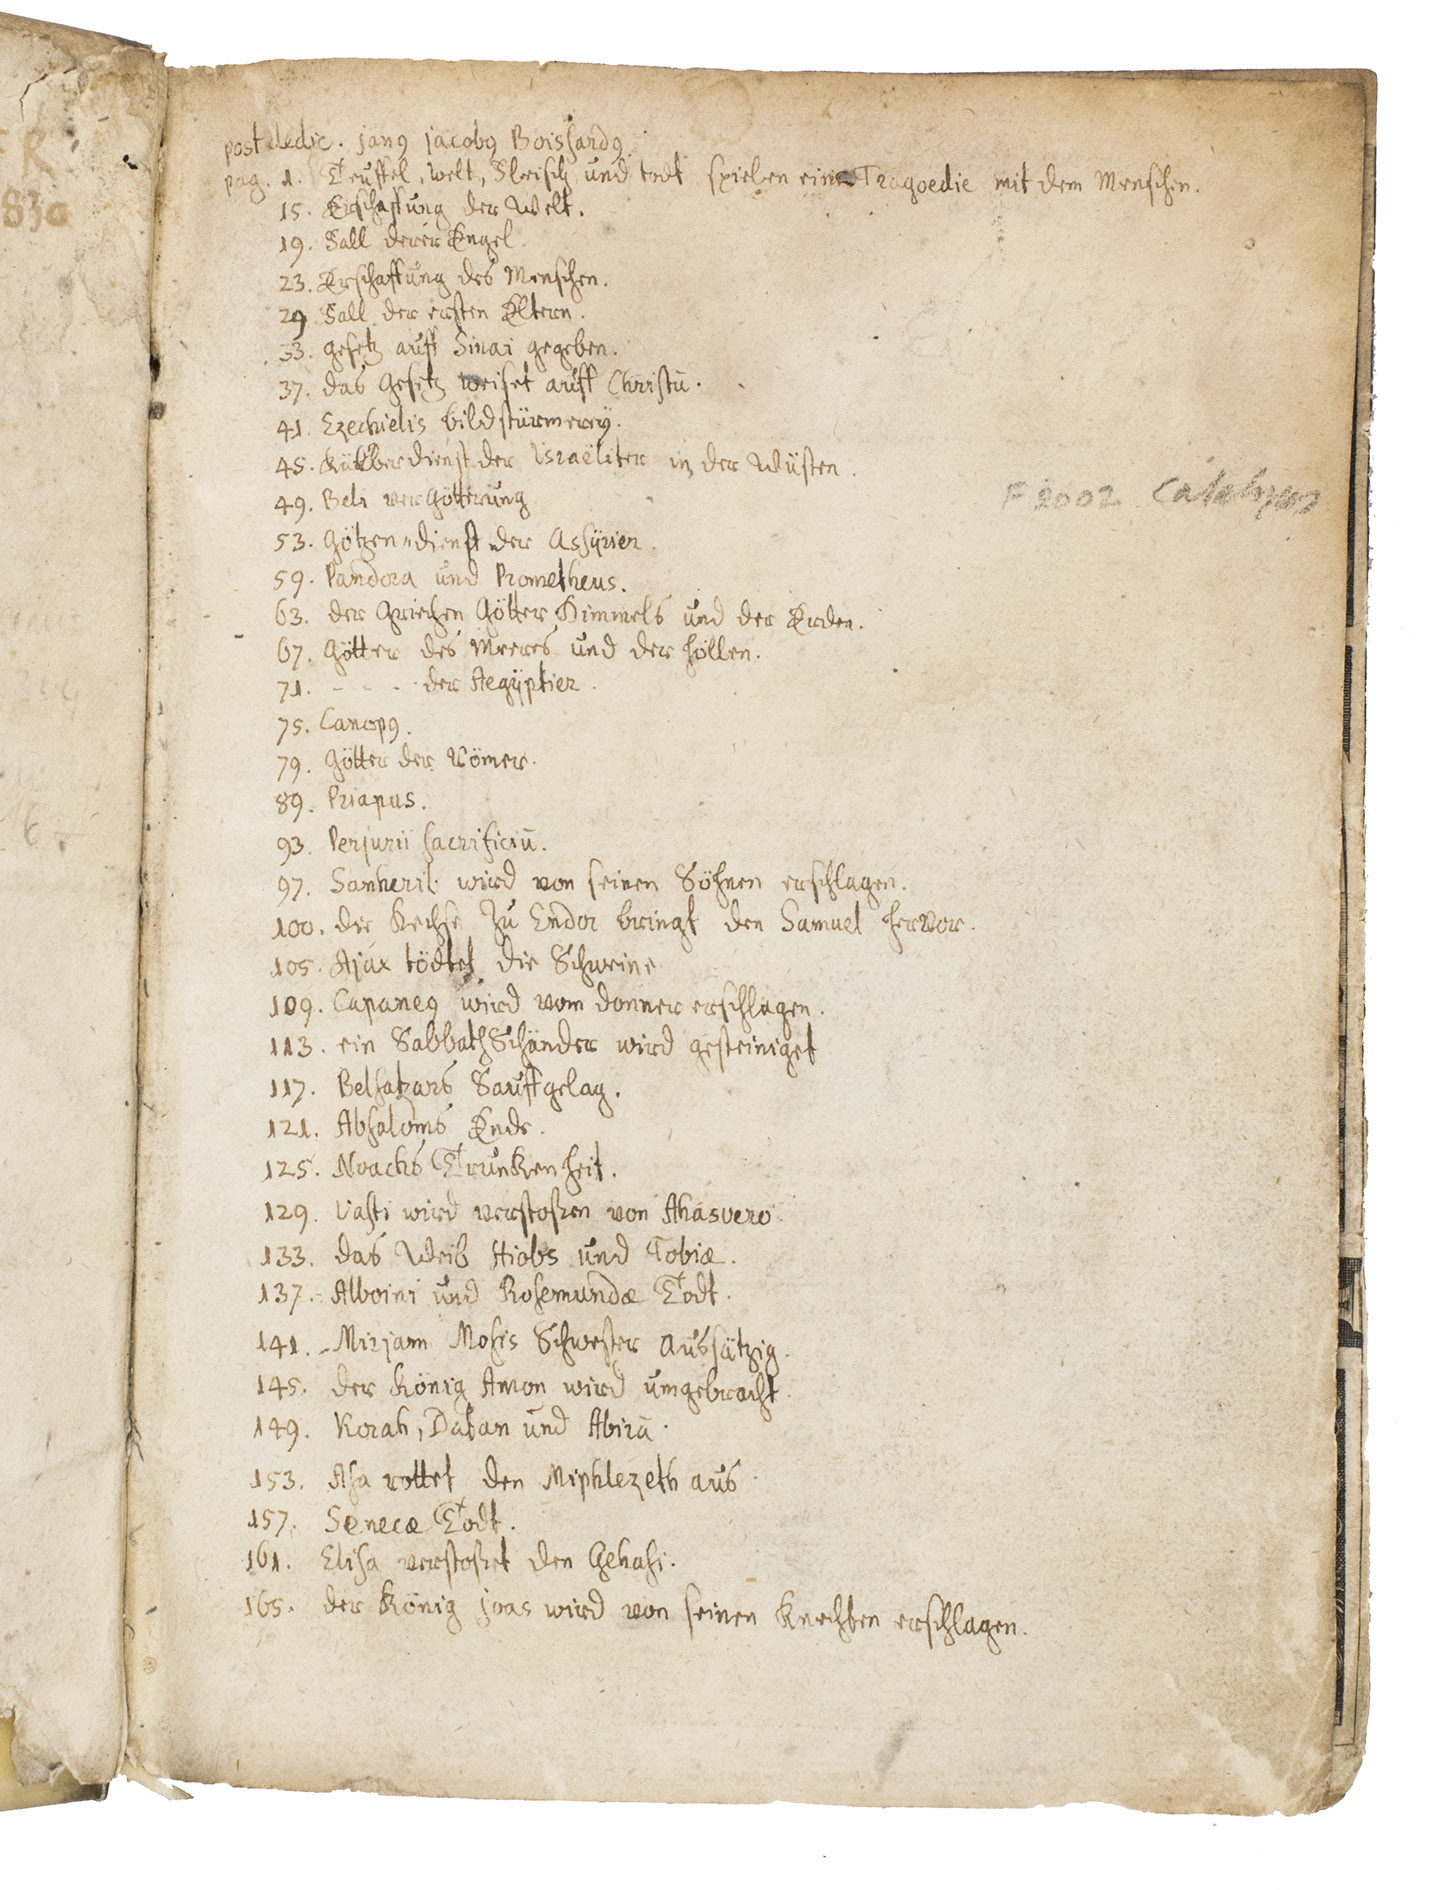 post dedic. janꝰ jacobꝰ Boissardꝰ.
pag. 1. Teuffel, welt, Fleisch und todt spielen eine Tragoedie mit dem Menschen.
15. Erschaffung der Welt.
19. Fall derer Engel.
23. Erschaffung des Menschen.
29. Fall der ersten Eltern.
33. gesetz auff Sinai gegeben.
37. das gesetz weiset auff Christū.
41. Ezechielis bildstürmerey.
45. Kälberdienst der Israëliter in der Wüsten.
49. Beli vergötterung
53. götzen=dienst der Assÿrier.
59. Pandora und Prometheus.
63. der Griechen Götter Himmels und der Erden.
67. Götter des Meeres und der höllen.
71. - - - der Aegÿptier.
75. Canopꝰ.
79. Götter der Römer.
89. Priapus.
93. Perjurii sacrificiū.
97. Sanherib wird von seinen Söhnen erschlagen.
100. die Hechse zu Endor bringt den Samuel hervor.
105. Ajax tödtet die Schweine
109. Capaneꝰ wird vom donner erschlagen.
113. ein SabbathSchänder wird gesteiniget
117. Belsatzars Sauffgelag.
121. Absaloms Ende.
125. Noachs Trunkenheit.
129. Vasti wird verstoßen von Ahasvero.
133. das Weib Hiobs und Tobiæ.
137. Alboini und Rosemundæ Todt.
141. Mirjam Mosis Schwester Aussätzig.
145. der König Amon wird umgebracht.
149. Korah, Datan und Abirā.
153. Asa rottet den Miphlezeth aus.
157. Senecæ Todt.
161. Elisa verstoßet den Gehasi.
165. der König joas wird von seinen Knechten erschlagen.
F 2002
R
830